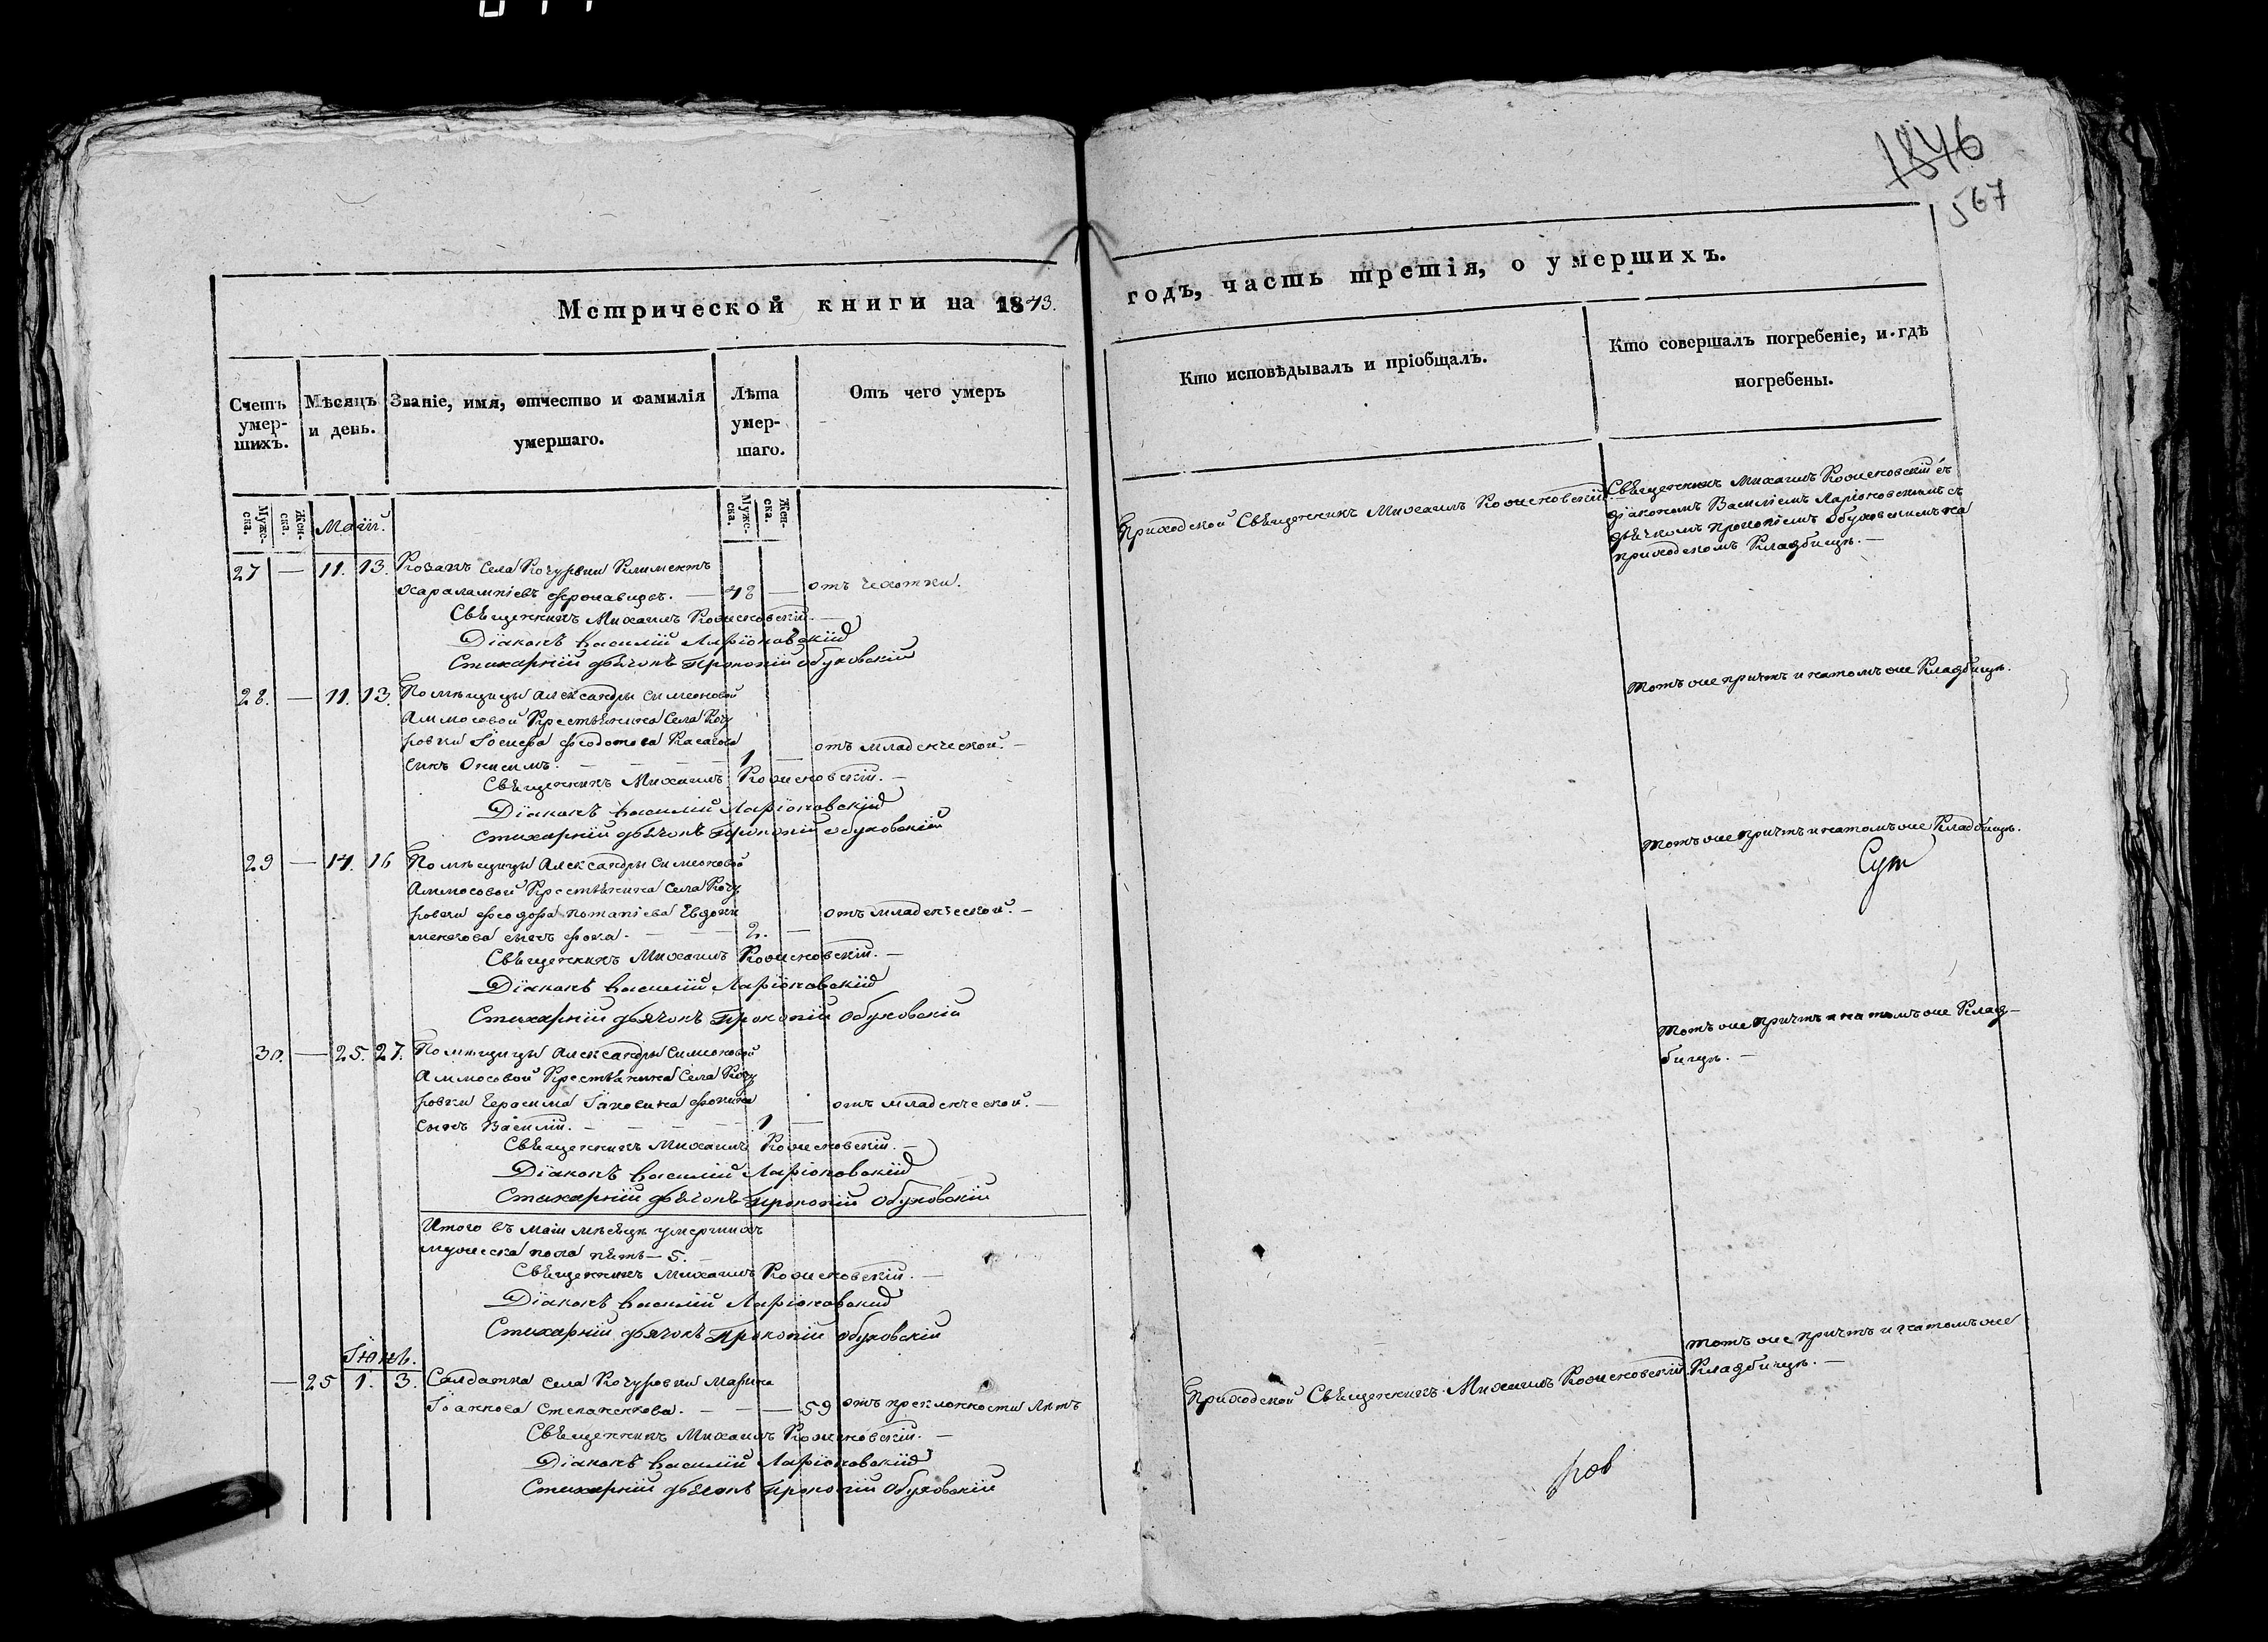 1846
567
Метрической книги на 1843.
годъ, часть третія, о умершихъ.
Счетъ умер-шихъ.
Мѣсяцъ и день.
Званіе, имя, отчество и фамилія умершаго.
Лѣта умер-шаго.
Отъ чего умеръ
Кто исповѣдывалъ и пріобщалъ.
Кто совершалъ погребеніе, и гдѣ погребены.
Мужс-ска.
Жен-ска.
Маій.
Мужс-ска.
Жен-ска.
27 — 11. 13. Козакъ Села Кочуровки Климентъ
Харалампіевъ — 48 — отъ чахотки.
Священникъ Михаилъ
Діаконъ Василій Ларіоновскій
Стихарній дьячокъ Прокопій Обуховскій
Приходской Священникъ Михаилъ
Священникъ Михаилъ съ
діакономъ Василіемъ Ларіоновскимъ съ
дьячкомъ Прокопіемъ Обуховскимъ на
приходскомъ Кладбищѣ. —
28. — 11. 13. Помѣщицы Александры Симеоновой
Аммосовой Крестьянина Села Кочу
ровки Іосифа Феодотова отъ младенческой. —
сынъ Онисимъ. — 1 —
Священникъ Михаилъ
Діаконъ Василій Ларіоновскій
Стихарній дьячокъ Прокопій Обуховскій
Тотъ же причтъ и натомъ же Кладбищѣ.
29 — 14. 16 Помѣщицы Александры Симеоновой
Аммосовой Крестьянина Села Кочу
ровки Феодора Потапіева Евдоки отъ младенческой. —
менкова сынъ Фока. — 2. —
Священникъ Михаилъ
Діаконъ Василій Ларіоновскій
Стихарній дьячокъ Прокопій Обуховскій
Тотъ же причтъ и натомъ же Кладбищѣ.
Сут
30. — 25. 27. Помѣщицы Александры Симеоновой
Аммосовой Крестьянина Села Кочу
ровки Герасима отъ младенческой. —
сынъ Василій. — 1 —
Священникъ Михаилъ
Діаконъ Василій Ларіоновскій
Стихарній дьячокъ Прокопій Обуховскій
Тотъ же причтъ и на томъ же Клад-
бищѣ. —
Итого въ маіи мѣсяцѣ умершихъ
мужеска пола пять — 5.
Священникъ Михаилъ
Діаконъ Василій Ларіоновскій
Стихарній дьячокъ Прокопій Обуховскій
Іюнь.
— 25 1. 3. Салдатка села Кочуровки Марина
Іоаннова Степаненкова. — — 59 отъ преклонности лѣтъ
Священникъ Михаилъ
Діаконъ Василій Ларіоновскій
Стихарній дьячокъ Прокопій Обуховскій
Приходской Священникъ Михаилъ
Тотъ же причтъ и натомъ же
Кладбищѣ. —
ров